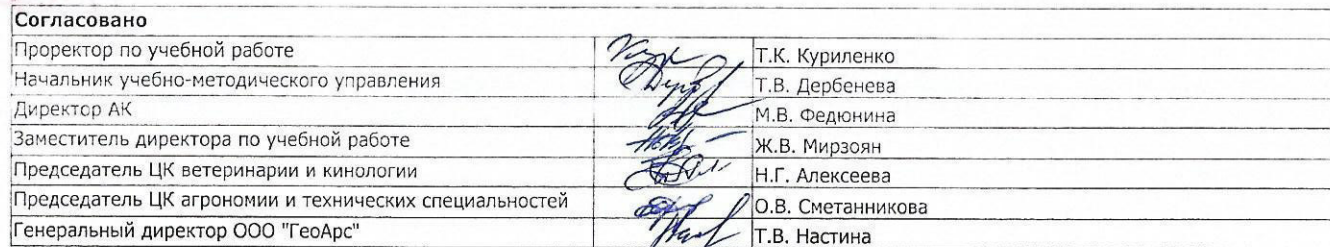 Согласовано
Проректор по учебной работе Т.К. Куриленко
Начальник учебно-методического управления Т.В. Дербенева
Директор АК М.В. Федюнина
Заместитель директора по учебной работе Ж.В. Мирзоян
Председатель ЦК ветеринарии и кинологии Н.Г. Алексеева
Председатель ЦК агрономии и технических специальностей О.В. Сметанникова
Генеральный директор ООО "ГеоАрс" Т.В. Настина